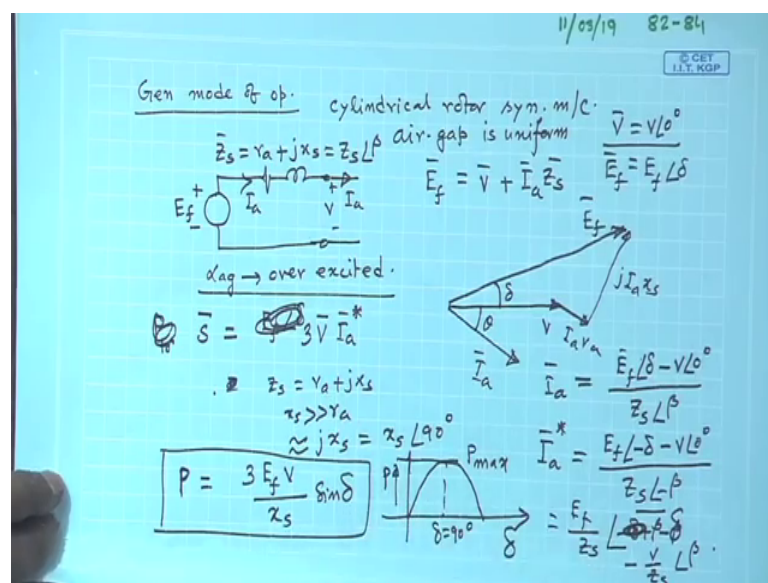 11/03/19 82-84
© CET
I.I.T. KGP
Gen mode of op.
cylindrical rotor syn. m/c.
air-gap is uniform
V̄ = V∠0°
Ē_f = E_f∠δ
Z̄_s = r_a + jx_s = Z_s∠β
Ē_f = V̄ + Ī_a Z̄_s
E_f + -
Ī_a
+ V -
I_a
lag → over excited.
Ē_f
δ
θ
V
I_a r_a
jI_a x_s
Ī_a
S̄ = 3V̄ Ī_a*
Z_s = r_a + jx_s
x_s >> r_a
≈ jx_s = x_s∠90°
Ī_a = (Ē_f∠δ - V∠0°) / (Z_s∠β)
Ī_a* = (E_f∠-δ - V∠0°) / (Z_s∠-β)
= E_f/Z_s ∠β-δ
- V/Z_s ∠β.
P = (3E_f V / x_s) sinδ
P
P_max
δ=90°
δ